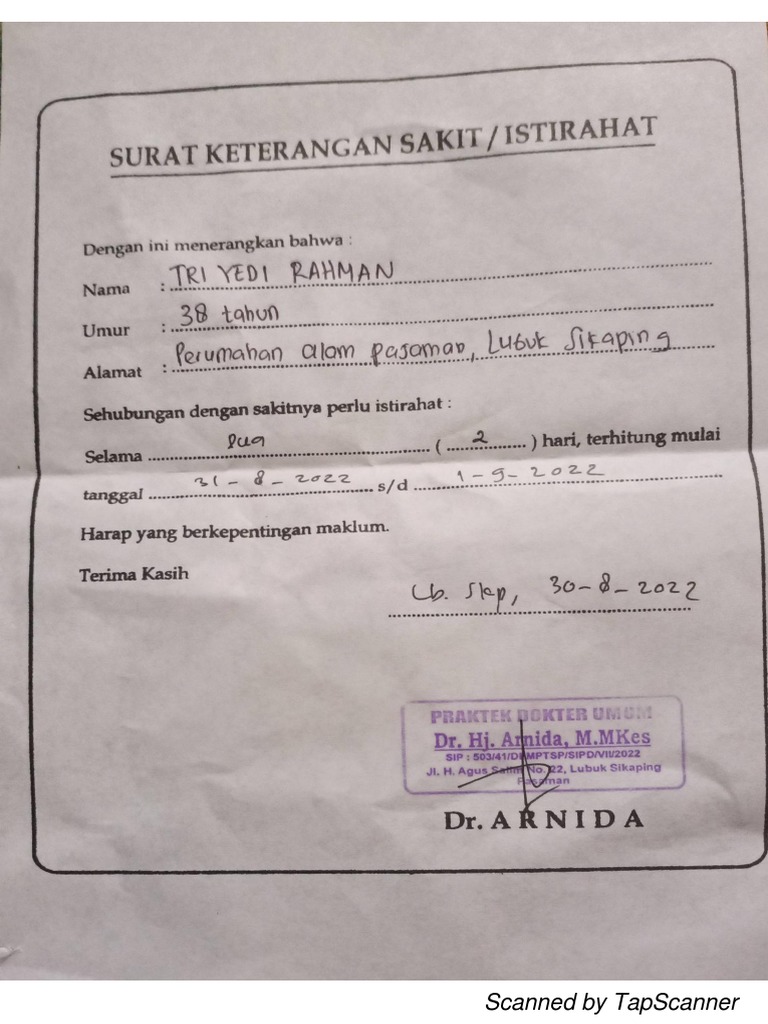 SURAT KETERANGAN SAKIT / ISTIRAHAT
Dengan ini menerangkan bahwa :
Nama : TRI YEDI RAHMAN
Umur : 38 tahun
Alamat : Perumahan alam pasaman, Lubuk Sikaping
Sehubungan dengan sakitnya perlu istirahat :
Selama dua ( 2 ) hari, terhitung mulai
tanggal 31 - 8 - 2022 s/d 1 - 9 - 2022
Harap yang berkepentingan maklum.
Terima Kasih
Lb. Skp, 30-8-2022
PRAKTEK DOKTER UMUM
Dr. Hj. Arnida, M.MKes
SIP : 503/41/DPMPTSP/SIPD/VII/2022
Jl. H. Agus Salim No. 22, Lubuk Sikaping
Pasaman
Dr. ARNIDA
Scanned by TapScanner